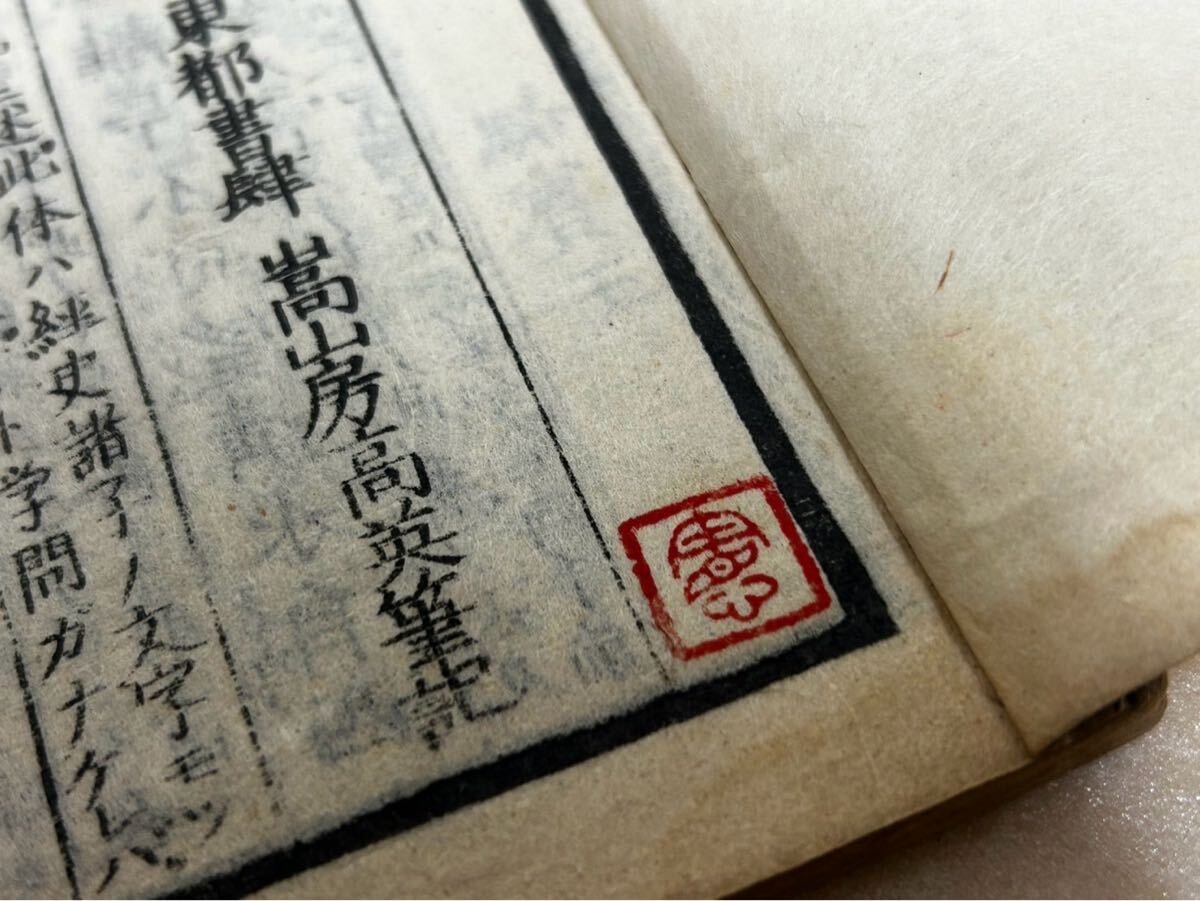 東都書肆 嵩山房高英筆記
此体ハ経史諸子ノ文字ヲモツ
学問ガナケレバ